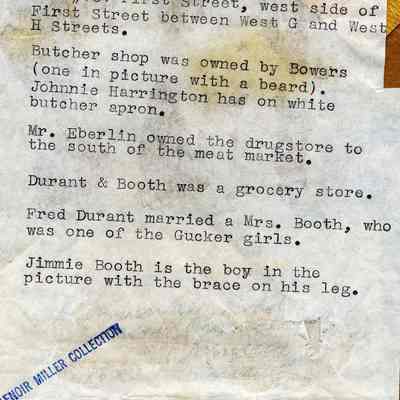 First Street, west side of
First Street between West G and West
H Streets.
Butcher shop was owned by Bowers
(one in picture with a beard).
Johnnie Harrington has on white
butcher apron.
Mr. Eberlin owned the drugstore to
the south of the meat market.
Durant & Booth was a grocery store.
Fred Durant married a Mrs. Booth, who
was one of the Gucker girls.
Jimmie Booth is the boy in the
picture with the brace on his leg.
LENOIR MILLER COLLECTION